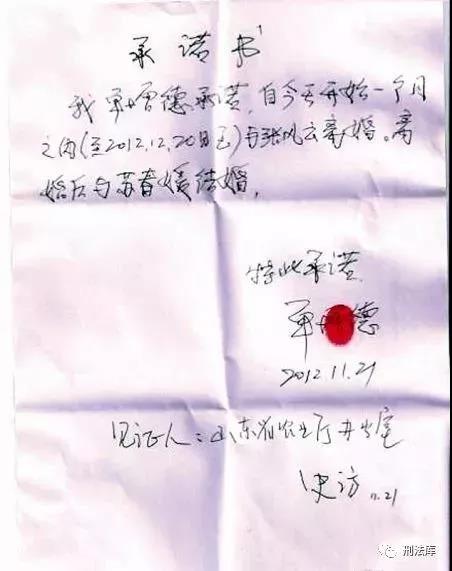 承诺书
我单增德承诺,自今天开始一个月
之内(至2012.12.20日止)与张凤云离婚。离
婚后与苏春媛结婚.
特此承诺.
单增德
2012.11.21
见证人:山东省农业厅办公室
史访 11.21
刑法库